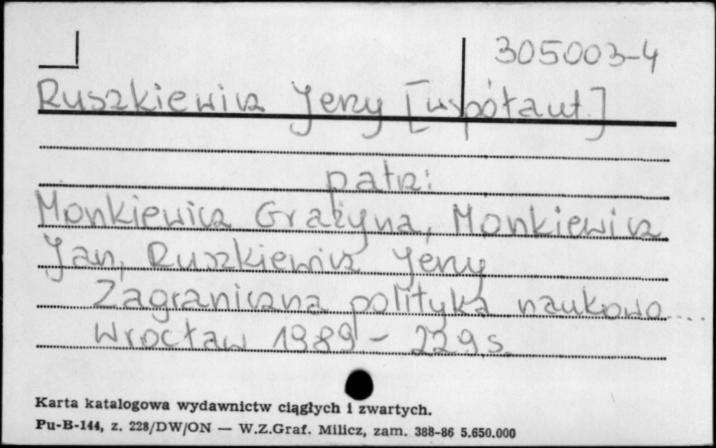 305003-4
Ruszkiewicz Jerzy [współaut.]
patrz:
Monkiewicz Grażyna, Monkiewicz
Jan, Ruszkiewicz Jerzy
Zagraniczna polityka naukowo...
Wrocław 1989 - 229 s.
Karta katalogowa wydawnictw ciągłych i zwartych.
Pu-B-144, z. 228/DW/ON — W.Z.Graf. Milicz, zam. 388-86 5.650.000